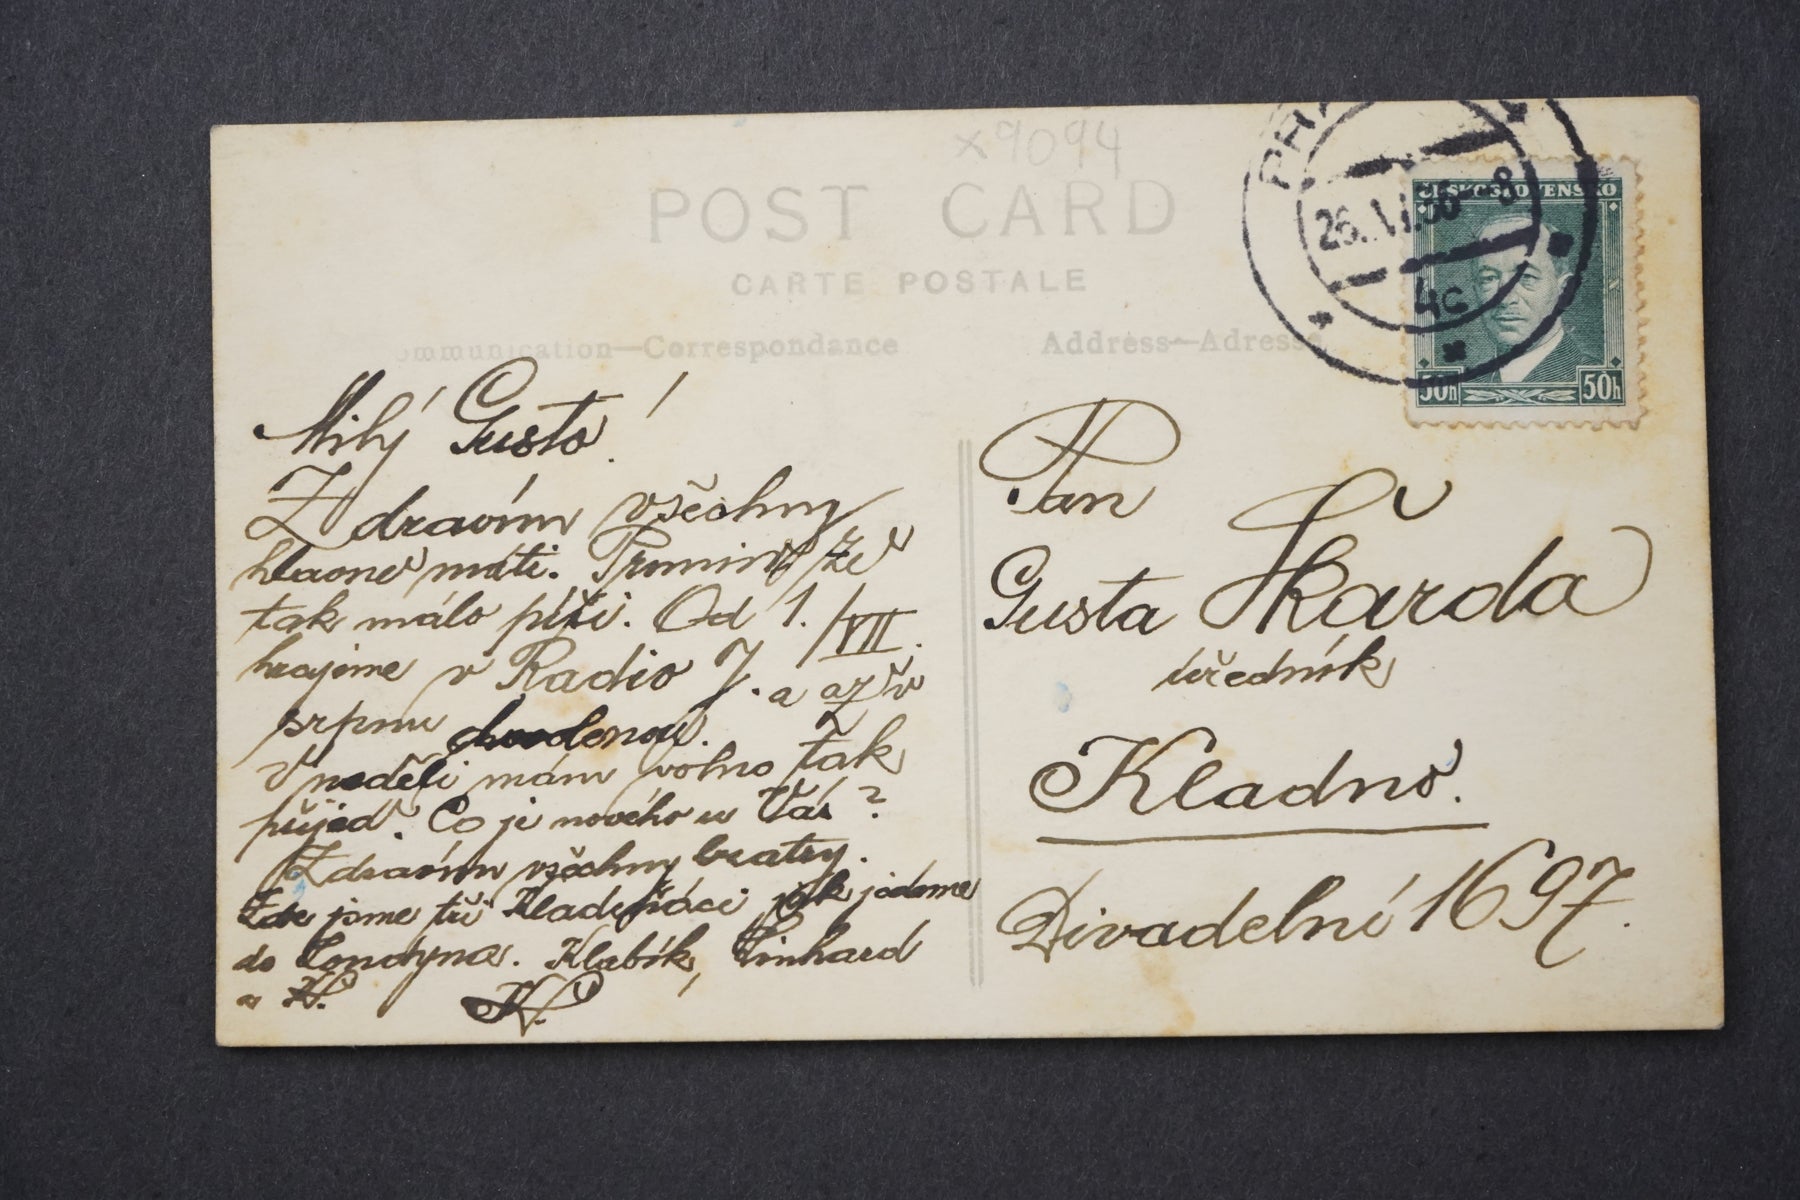 x9094
POST CARD
CARTE POSTALE
ommunication—Correspondance
Address—Adresse
26.VI.36--8
4c
ČESKOSLOVENSKO
50h 50h
Milý Gusto!
Zdravím všechny
hlavně máti. Promiň že
tak málo píši. Od 1./VII.
hrajeme v Radio J. a až v
srpnu
V neděli mám volno tak
přijeď. Co je nového u Vás?
Zdravím všechny bratry.
Zde jsme tři Kladeňáci jak jedeme
do Londýna. Klabík, Linhard
a K.
K.
Pan
Gusta Škarda
úředník
Kladno.
Divadelní 1697.